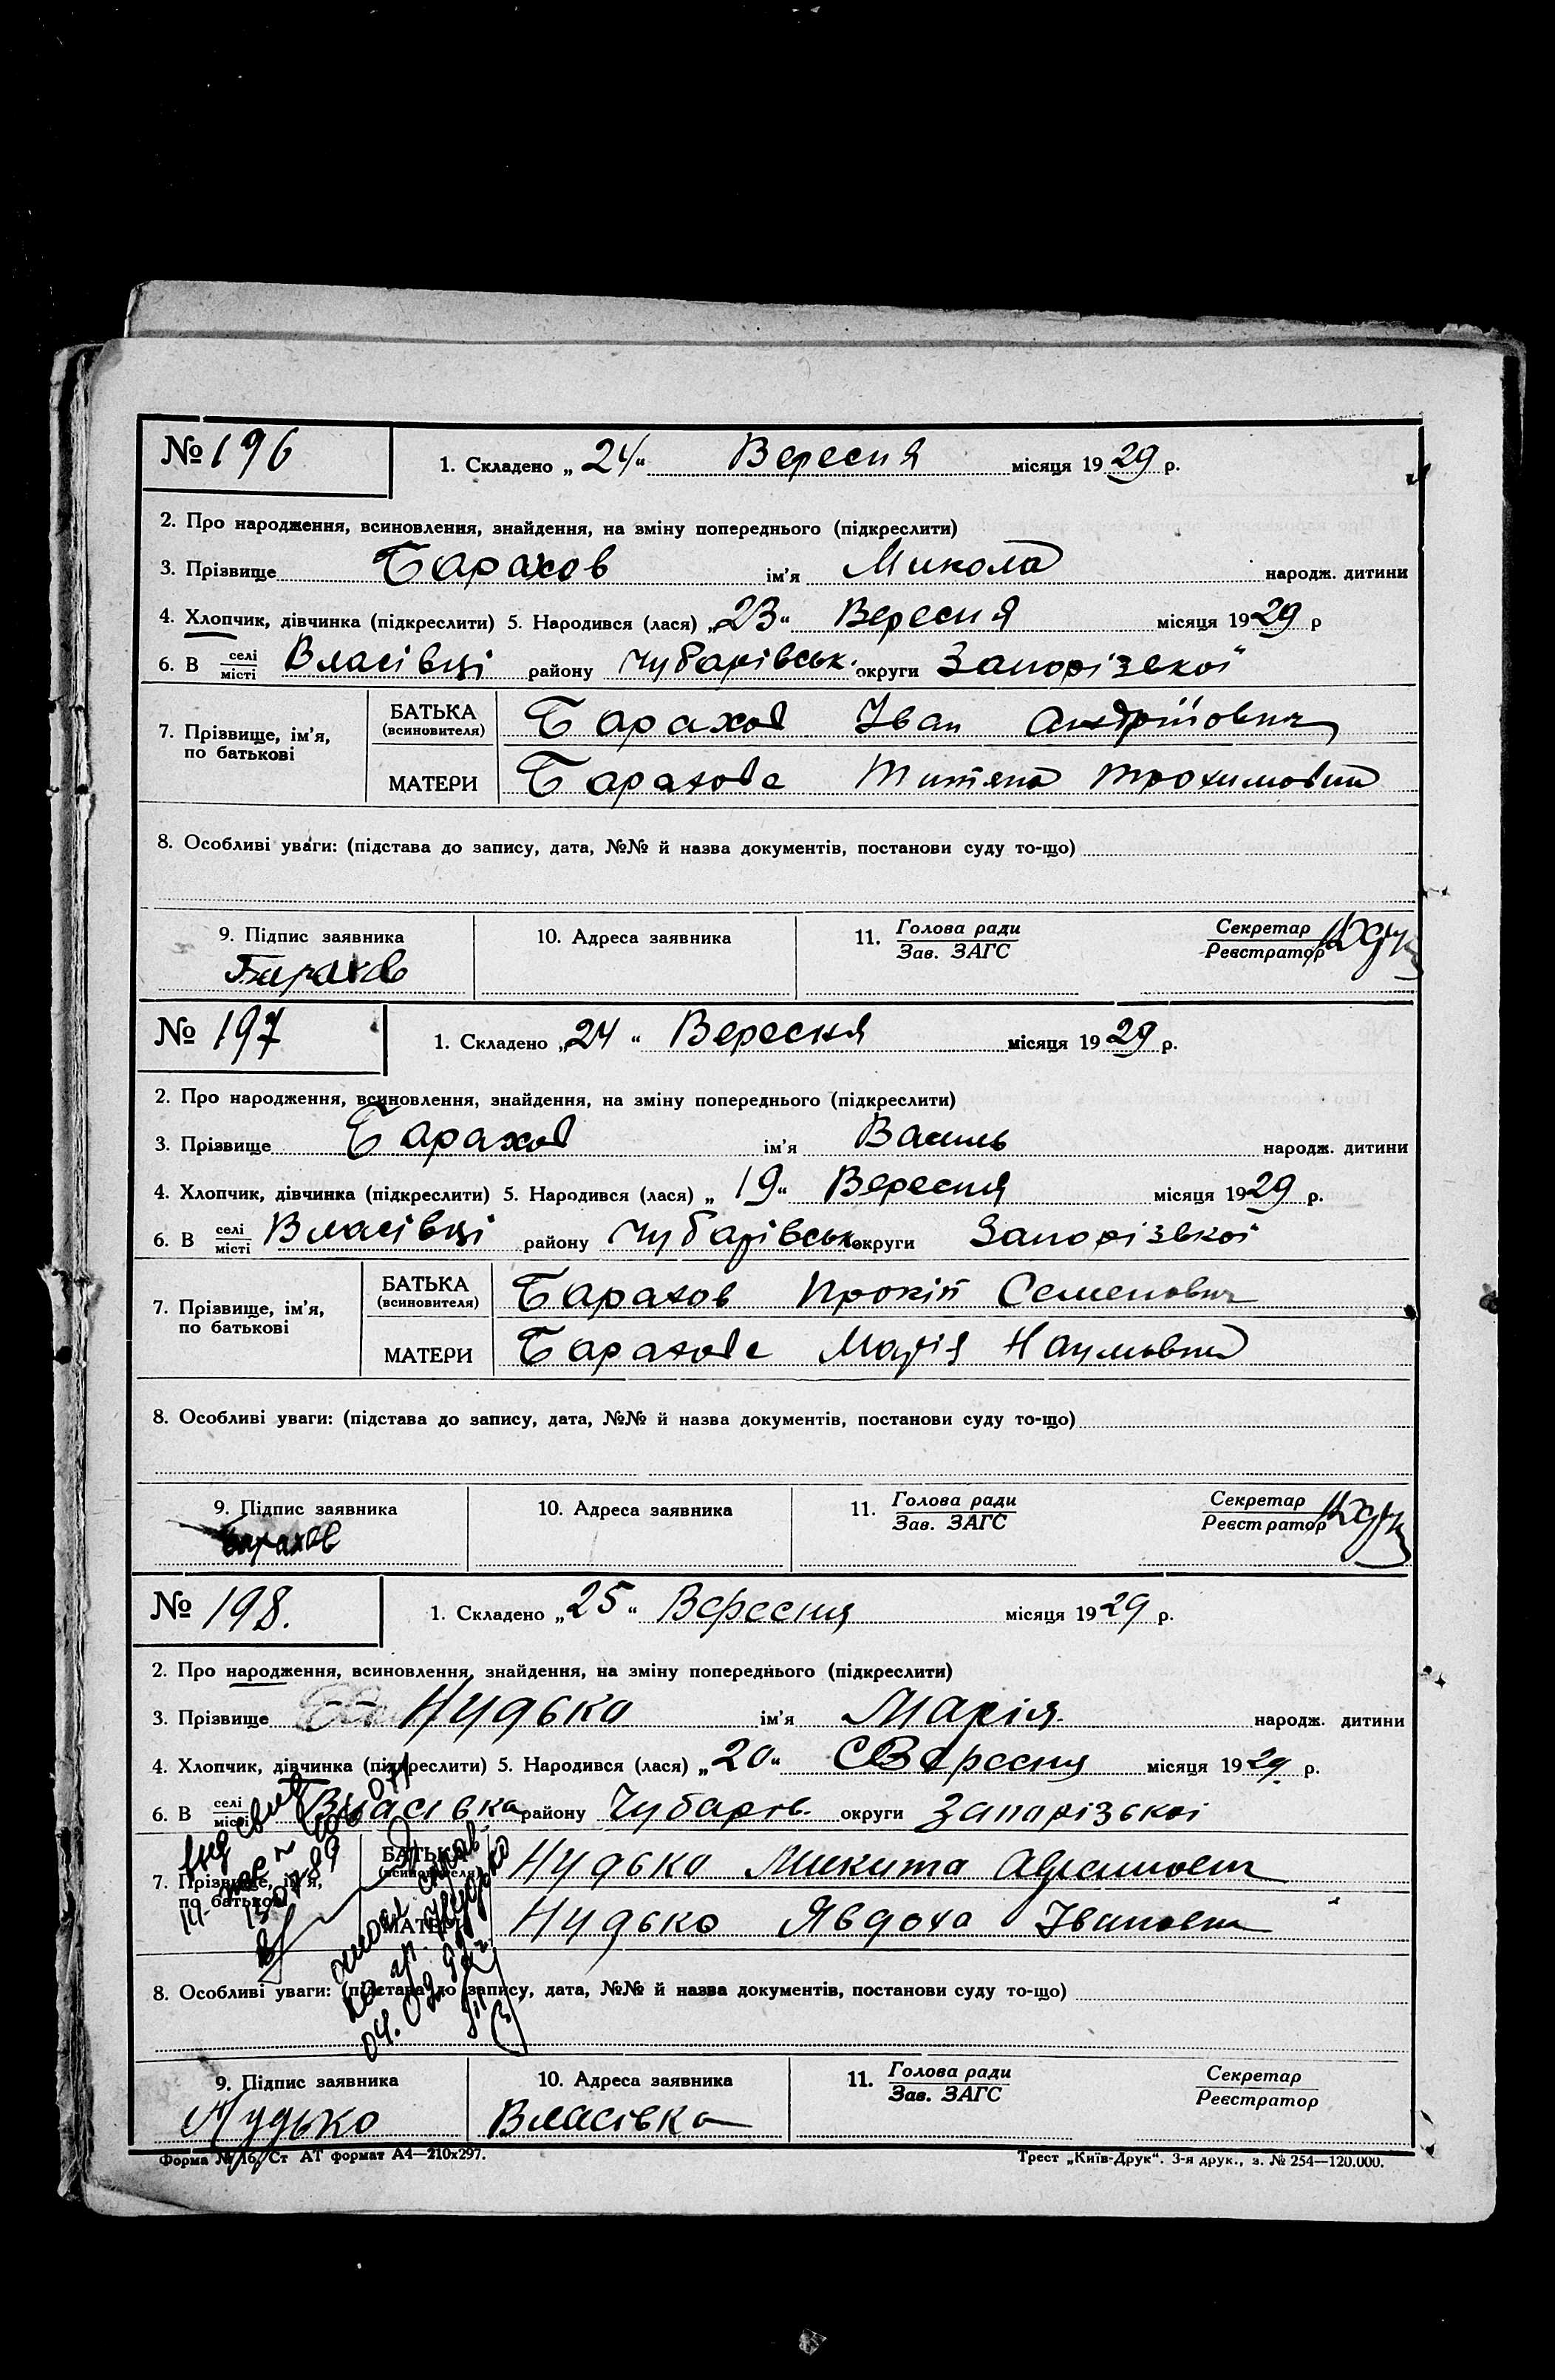 № 196 1. Складено „24“ Вересня місяця 1929 р.
2. Про народження, всиновлення, знайдення, на зміну попереднього (підкреслити)
3. Прізвище Барахов ім'я Микола народж. дитини
4. Хлопчик, дівчинка (підкреслити) 5. Народився (лася) „23“ Вересня місяця 1929 р
6. В селі місті Власівці району Чубарівськ. округи Запорізької
7. Прізвище, ім'я, по батькові БАТЬКА (всиновителя) Барахов Іван Андрійович
МАТЕРИ Барахова Титяна Трохимовна
8. Особливі уваги: (підстава до запису, дата, №№ й назва документів, постанови суду то-що)
9. Підпис заявника 10. Адреса заявника 11. Голова ради Зав. ЗАГС Секретар Реєстратор
Барахов
№ 197 1. Складено „24“ Вересня місяця 1929 р.
2. Про народження, всиновлення, знайдення, на зміну попереднього (підкреслити)
3. Прізвище Барахов ім'я Василь народж. дитини
4. Хлопчик, дівчинка (підкреслити) 5. Народився (лася) „19“ Вересня місяця 1929 р.
6. В селі місті Власівці району Чубарівськ. округи Запорізької
7. Прізвище, ім'я, по батькові БАТЬКА (всиновителя) Барахов Прокіп Семенович
МАТЕРИ Барахова Марія Наумовна
8. Особливі уваги: (підстава до запису, дата, №№ й назва документів, постанови суду то-що)
9. Підпис заявника 10. Адреса заявника 11. Голова ради Зав. ЗАГС Секретар Реєстратор
Барахов
№ 198. 1. Складено „25“ Вересня місяця 1929 р.
2. Про народження, всиновлення, знайдення, на зміну попереднього (підкреслити)
3. Прізвище Нудько ім'я Марія народж. дитини
4. Хлопчик, дівчинка (підкреслити) 5. Народився (лася) „20“ Вересня місяця 1929 р.
6. В селі місті Власівка району Чубарів. округи Запорізької
7. Прізвище, ім'я, по батькові БАТЬКА (всиновителя) Нудько Микита
МАТЕРИ Нудько Явдоха Івановна
8. Особливі уваги: (підстава до запису, дата, №№ й назва документів, постанови суду то-що)
9. Підпис заявника 10. Адреса заявника 11. Голова ради Зав. ЗАГС Секретар Реєстратор
Нудько Власівка
Форма № 16, Ст АТ формат А4—210х297. Трест „Київ-Друк“. 3-я друк., з. № 254—120.000.